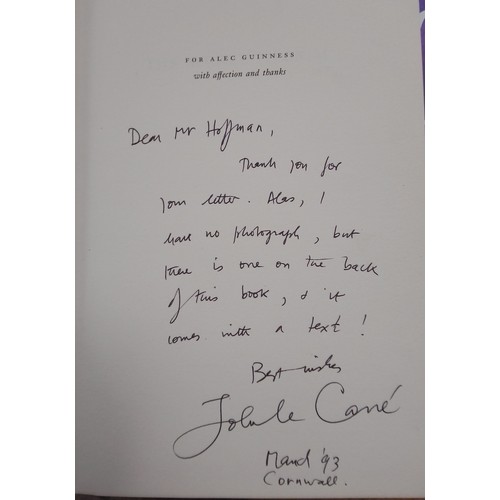 FOR ALEC GUINNESS
with affection and thanks
Dear Mr Hoffman,
Thank you for
your letter. Alas, I
have no photograph, but
there is one on the back
of this book, & it
comes with a text!
Best wishes
John le Carré
March '93
Cornwall.